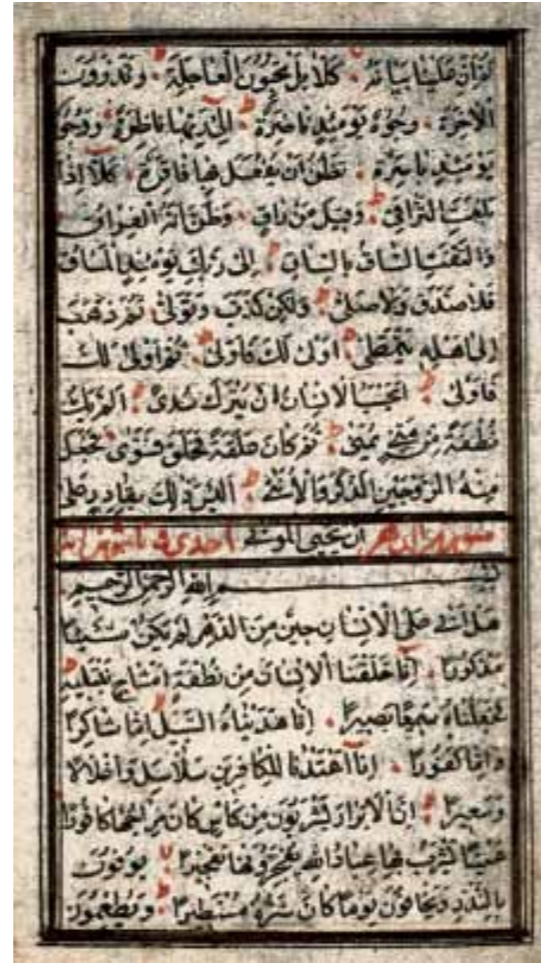 ثُمَّ اِنَّ عَلَيْنَا بَيَانَهُ كَلَّا بَلْ تُحِبُّونَ الْعَاجِلَةَ وَتَذَرُونَ
الْاٰخِرَةَ وُجُوهٌ يَوْمَئِذٍ نَاضِرَةٌ اِلٰى رَبِّهَا نَاظِرَةٌ وَوُجُوهٌ
يَوْمَئِذٍ بَاسِرَةٌ تَظُنُّ اَنْ يُفْعَلَ بِهَا فَاقِرَةٌ كَلَّا اِذَا
بَلَغَتِ التَّرَاقِيَ وَقِيلَ مَنْ رَاقٍ وَظَنَّ اَنَّهُ الْفِرَاقُ
وَالْتَفَّتِ السَّاقُ بِالسَّاقِ اِلٰى رَبِّكَ يَوْمَئِذٍ الْمَسَاقُ
فَلَا صَدَّقَ وَلَا صَلّٰى وَلٰكِنْ كَذَّبَ وَتَوَلّٰى ثُمَّ ذَهَبَ
اِلٰى اَهْلِهِ يَتَمَطّٰى اَوْلٰى لَكَ فَاَوْلٰى ثُمَّ اَوْلٰى لَكَ
فَاَوْلٰى اَيَحْسَبُ الْاِنْسَانُ اَنْ يُتْرَكَ سُدًى اَلَمْ يَكُ
نُطْفَةً مِنْ مَنِيٍّ يُمْنٰى ثُمَّ كَانَ عَلَقَةً فَخَلَقَ فَسَوّٰى فَجَعَلَ
مِنْهُ الزَّوْجَيْنِ الذَّكَرَ وَالْاُنْثٰى اَلَيْسَ ذٰلِكَ بِقَادِرٍ عَلٰى
سورة الدهر اَنْ يُحْيِيَ الْمَوْتٰى احدى و
بِسْمِ اللهِ الرَّحْمٰنِ الرَّحِيمِ
هَلْ اَتٰى عَلَى الْاِنْسَانِ حِينٌ مِنَ الدَّهْرِ لَمْ يَكُنْ شَيْئًا
مَذْكُورًا اِنَّا خَلَقْنَا الْاِنْسَانَ مِنْ نُطْفَةٍ اَمْشَاجٍ نَبْتَلِيهِ
فَجَعَلْنَاهُ سَمِيعًا بَصِيرًا اِنَّا هَدَيْنَاهُ السَّبِيلَ اِمَّا شَاكِرًا
وَاِمَّا كَفُورًا اِنَّا اَعْتَدْنَا لِلْكَافِرِينَ سَلَاسِلَ وَاَغْلَالًا
وَسَعِيرًا اِنَّ الْاَبْرَارَ يَشْرَبُونَ مِنْ كَاْسٍ كَانَ مِزَاجُهَا كَافُورًا
عَيْنًا يَشْرَبُ بِهَا عِبَادُ اللهِ يُفَجِّرُونَهَا تَفْجِيرًا يُوفُونَ
بِالنَّذْرِ وَيَخَافُونَ يَوْمًا كَانَ شَرُّهُ مُسْتَطِيرًا وَيُطْعِمُونَ